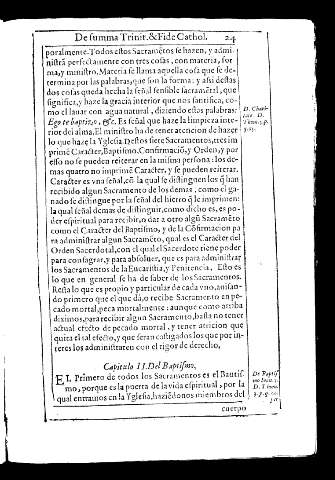 De summa Trinit. & Fide Cathol. 24
poralmente. Todos estos Sacramẽtos se hazen, y admi-
nistrã perfectamente con tres cosas, con materia, for
ma, y ministro. Materia se llama aquella cosa que se de-
termina por las palabras, que son la forma: y assi destas
dos cosas queda hecha la señal sensible sacramẽtal, que
significa, y haze la gracia interior que nos santifica, co-
mo el lauar con agua natural, diziendo estas palabras:
Ego te baptizo, &c. Es señal que haze la limpieza inte-
rior del alma. El ministro ha de tener atencion de hazer
lo que haze la Yglesia Destos siete Sacramentos, tres im
primẽ Caracter, Baptismo, Confirmaciõ, y Orden, y por
esso no se pueden reiterar en la misma persona: los de-
mas quatro no imprimẽ Caracter, y se pueden reiterar.
Caracter es vna señal, cõ la qual se distinguen los q̃ han
recibido algun Sacramento de los demas, como el ga-
nado se distingue por la señal del hierro q̃ le imprimen:
la qual señal demas de distinguir, como dicho es, es po-
der espiritual para recibir, o dar a otro algũ Sacramẽto
como el Caracter del Baptismo, y de la Cõfirmacion pa
ra administrar algun Sacramẽto, qual es el Caracter del
Orden Sacerdotal, con el qual el Sacerdote tiene poder
para consagrar, y para absoluer, que es para administrar
los Sacramentos de la Eucaristia, y Penitencia. Esto es
lo que en general se ha de saber de los Sacramentos.
Resta lo que es propio y particular de cada vno, auisan-
do primero que el que dà, o recibe Sacramento en pe-
cado mortal, peca mortalmente: aunque como arriba
diximos, para recibir algun Sacramento, basta no tener
actual efecto de pecado mortal, y tener atricion que
quita el tal efecto, y que seran castigados los que por in-
teres los administraren con el rigor de derecho,
Capitulo II. Del Baptismo.
EL Primero de todos los Sacramentos es el Bautis-
mo, porque es la puerta de la vida espiritual, por la
qual entramos en la Yglesia, haziẽdonos miembros del
cuerpo
D. Tho.